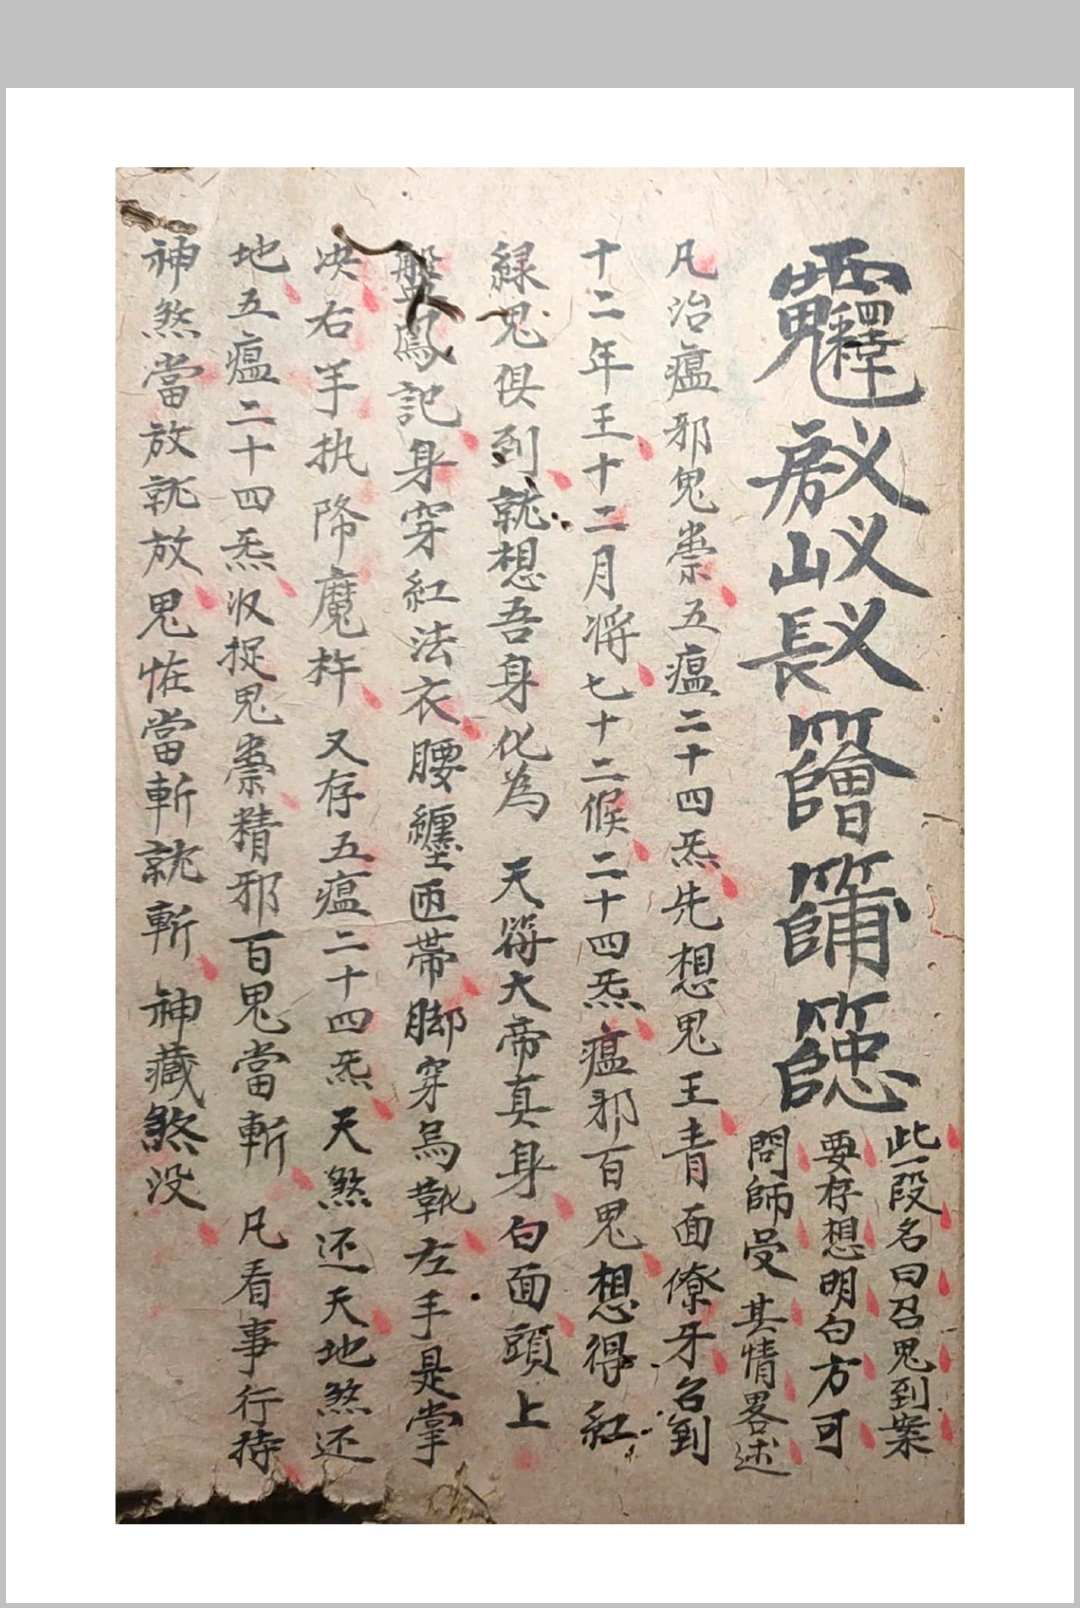 此一段名曰召鬼到案
要存想明白方可
問師受其情畧述
凡治瘟邪鬼祟五瘟二十四炁先想鬼王青面僚牙名到
十二年王十二月将七十二候二十四炁瘟邪百鬼想得紅
緑鬼俱到就想吾身化為天符大帝真身白面頭上
盤鳳記身穿紅法衣腰纏匝帶脚穿烏靴左手是掌
决右手执降魔杵又存五瘟二十四炁天煞还天地煞还
地五瘟二十四炁收捉鬼祟精邪百鬼當斬凡看事行持
神煞當放就放鬼怪當斬就斬神藏煞没